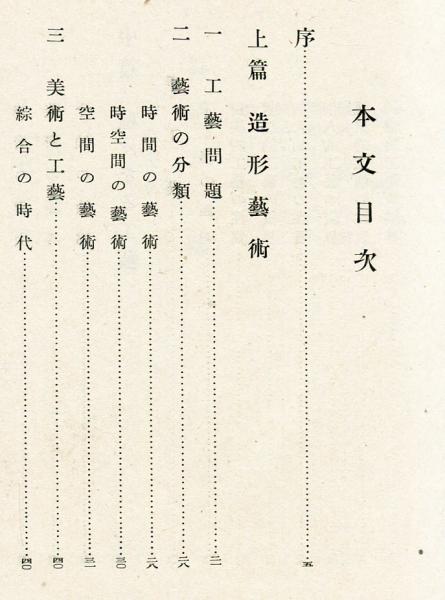 本文目次
序……五
上篇 造形藝術
一 工藝問題……二一
二 藝術の分類……二八
時間の藝術……二八
時空間の藝術……三〇
空間の藝術……三一
三 美術と工藝……四〇
綜合の時代……四〇